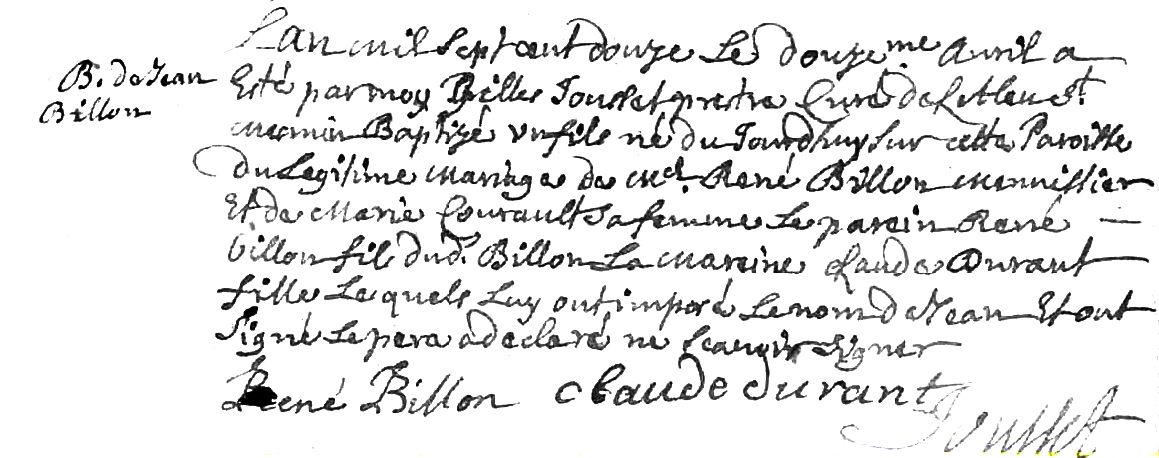 B. de Jean
Billon
L'an mil sept cent douze Le douzeme. Avril a
Esté par moy Gilles Jousset prestre Curé de St
mesmin Baptizé un fils né du Jourdhuy sur cette Paroisse
du Legitime mariage de Me. René Billon menuissier
Et de Marie Courault sa femme Le parein René —
billon fils dud. Billon La mareine Claude Durant
fille Lesquels Luy ont imposé Le nom de Jean Et ont
signé Le pere a declaré ne scavoir signer
René Billon claude durant
Jousset